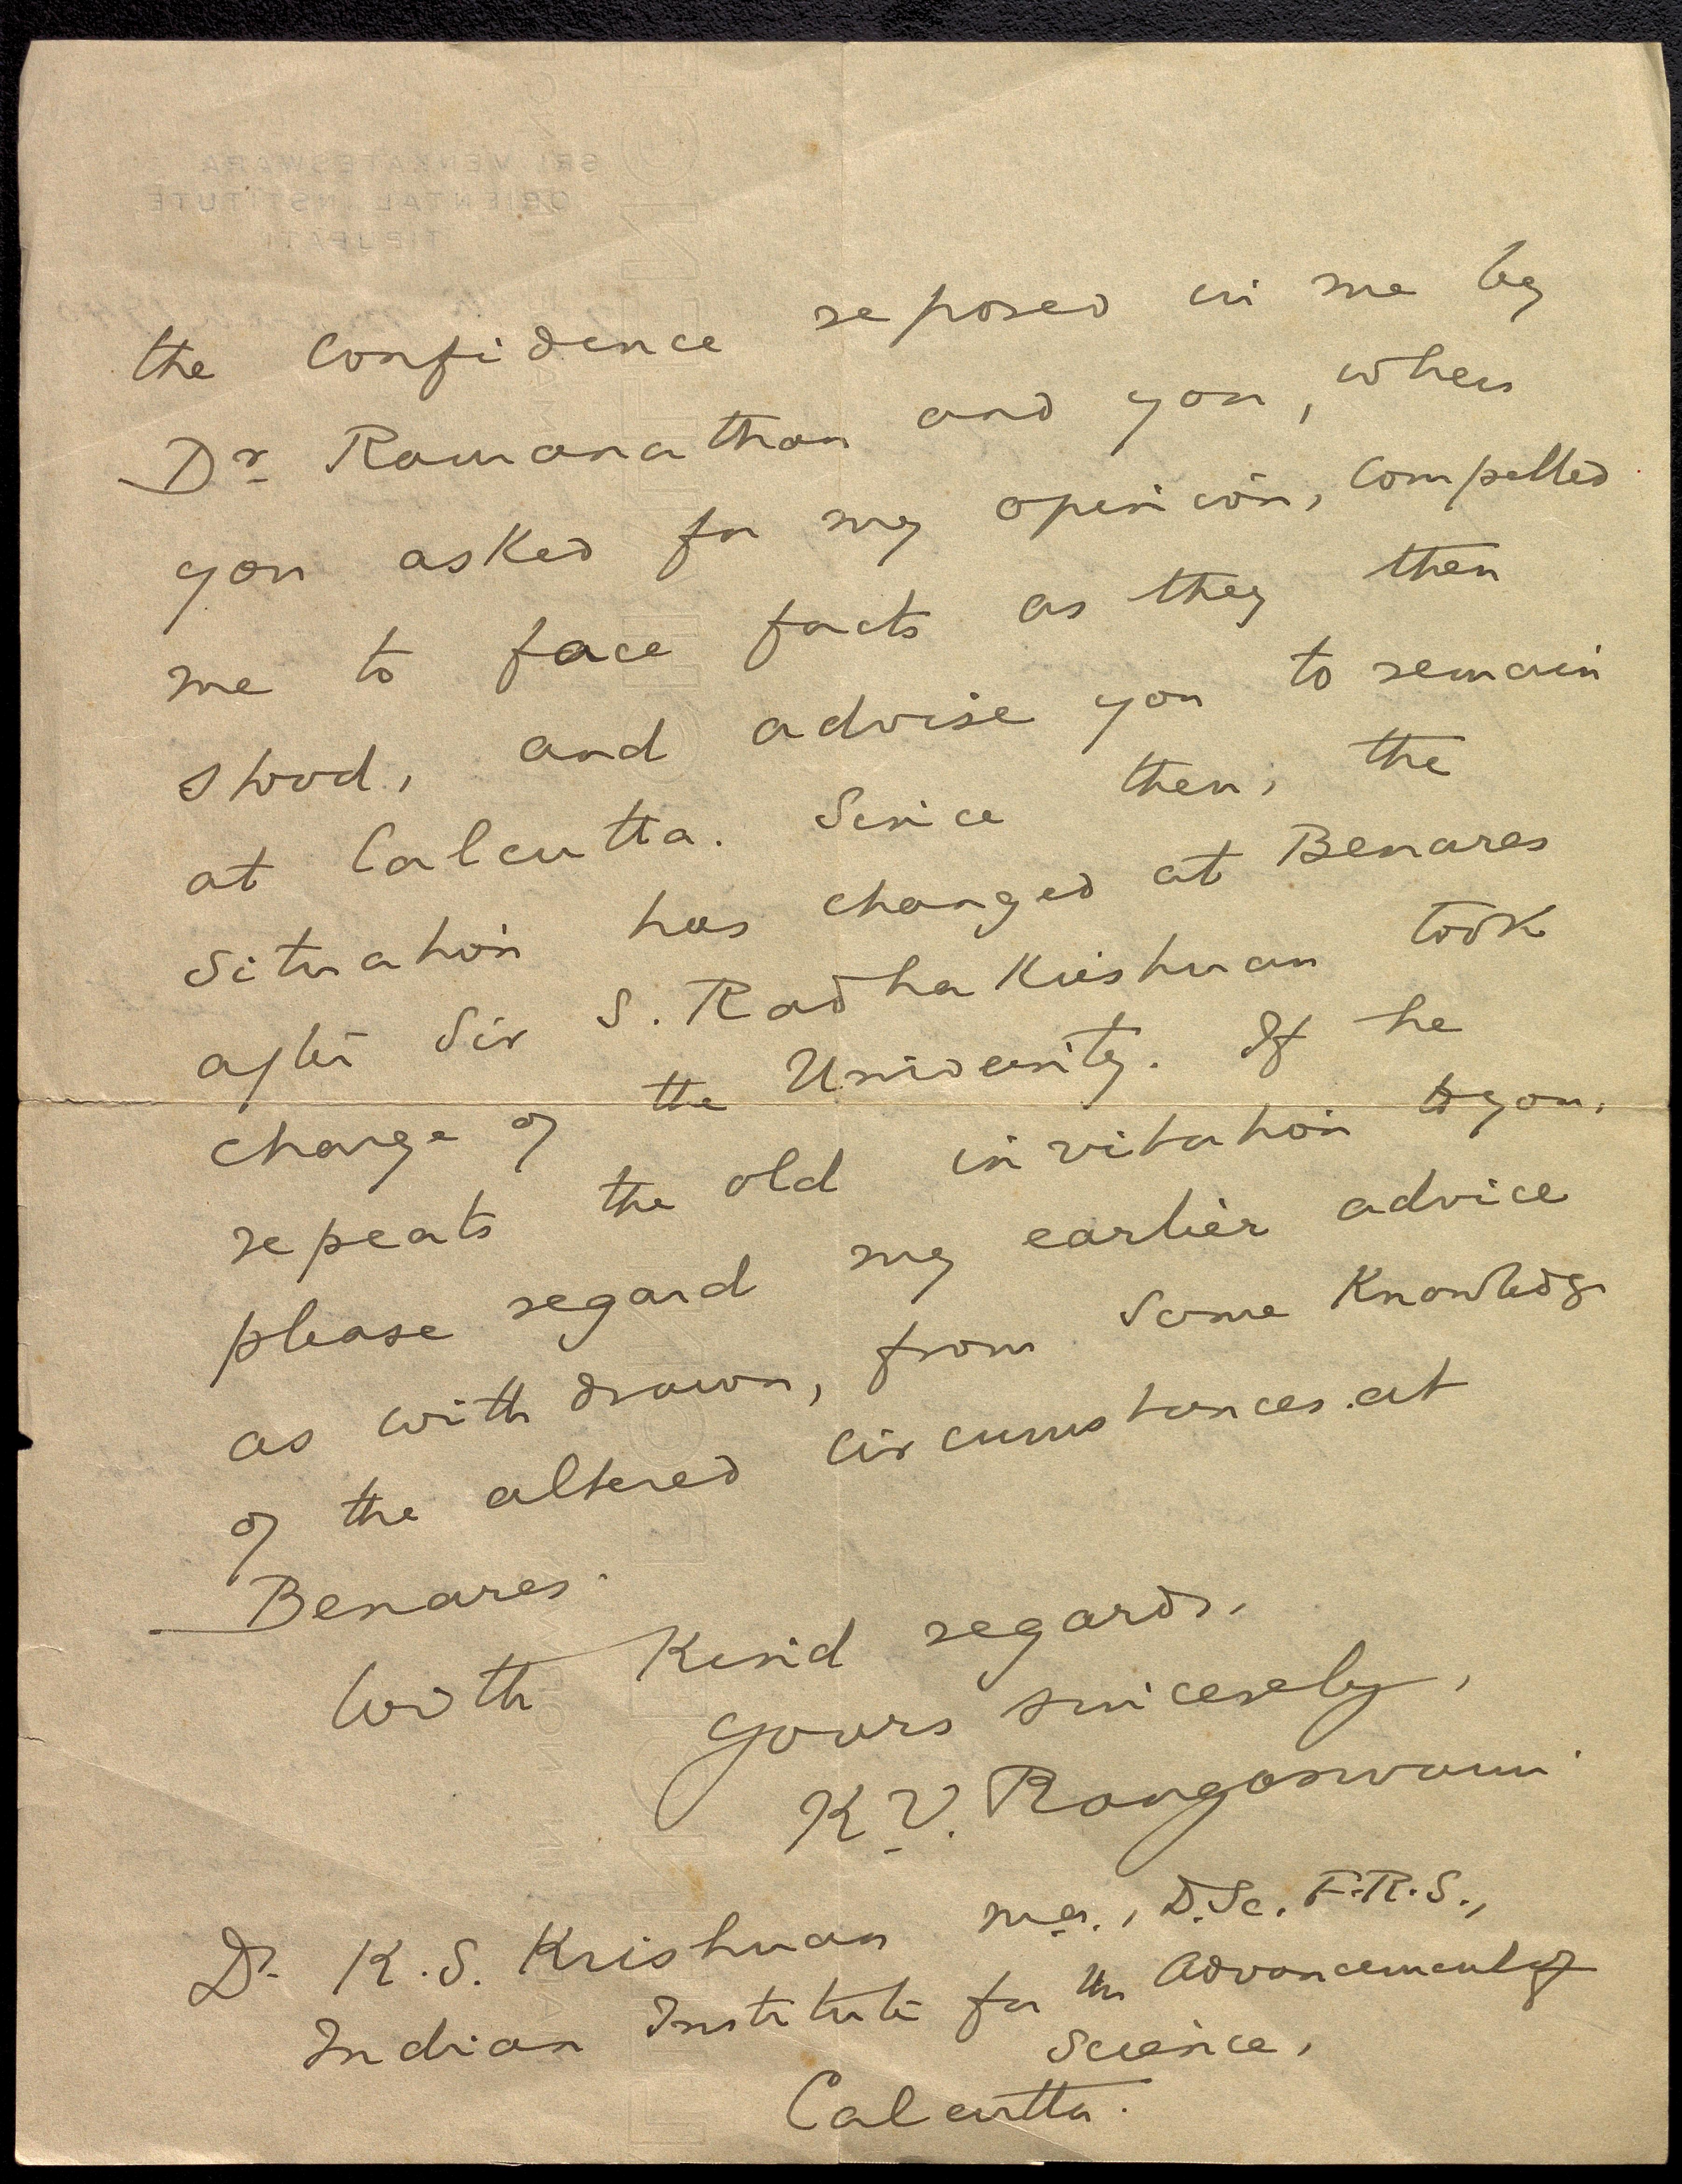 SRI VENKATESWARA
ORIENTAL INSTITUTE
TIRUPATI
the confidence reposed in me by
Dr Ramanathan and you, when
you asked for my opinion, compelled
me to face facts as they then
stood, and advise you to remain
at Calcutta. Since then, the
situation has changed at Benares
after Sir S. Radhakrishnan took
charge of the University. If he
repeats the old invitation to you,
please regard my earlier advice
as withdrawn, from some knowledge
of the altered circumstances at
Benares.
With kind regards,
yours sincerely,
K.V. Rangaswami
Dr K.S. Krishnan M.A., D.Sc. F.R.S.,
Indian Institute for the Advancement of
Science,
Calcutta.